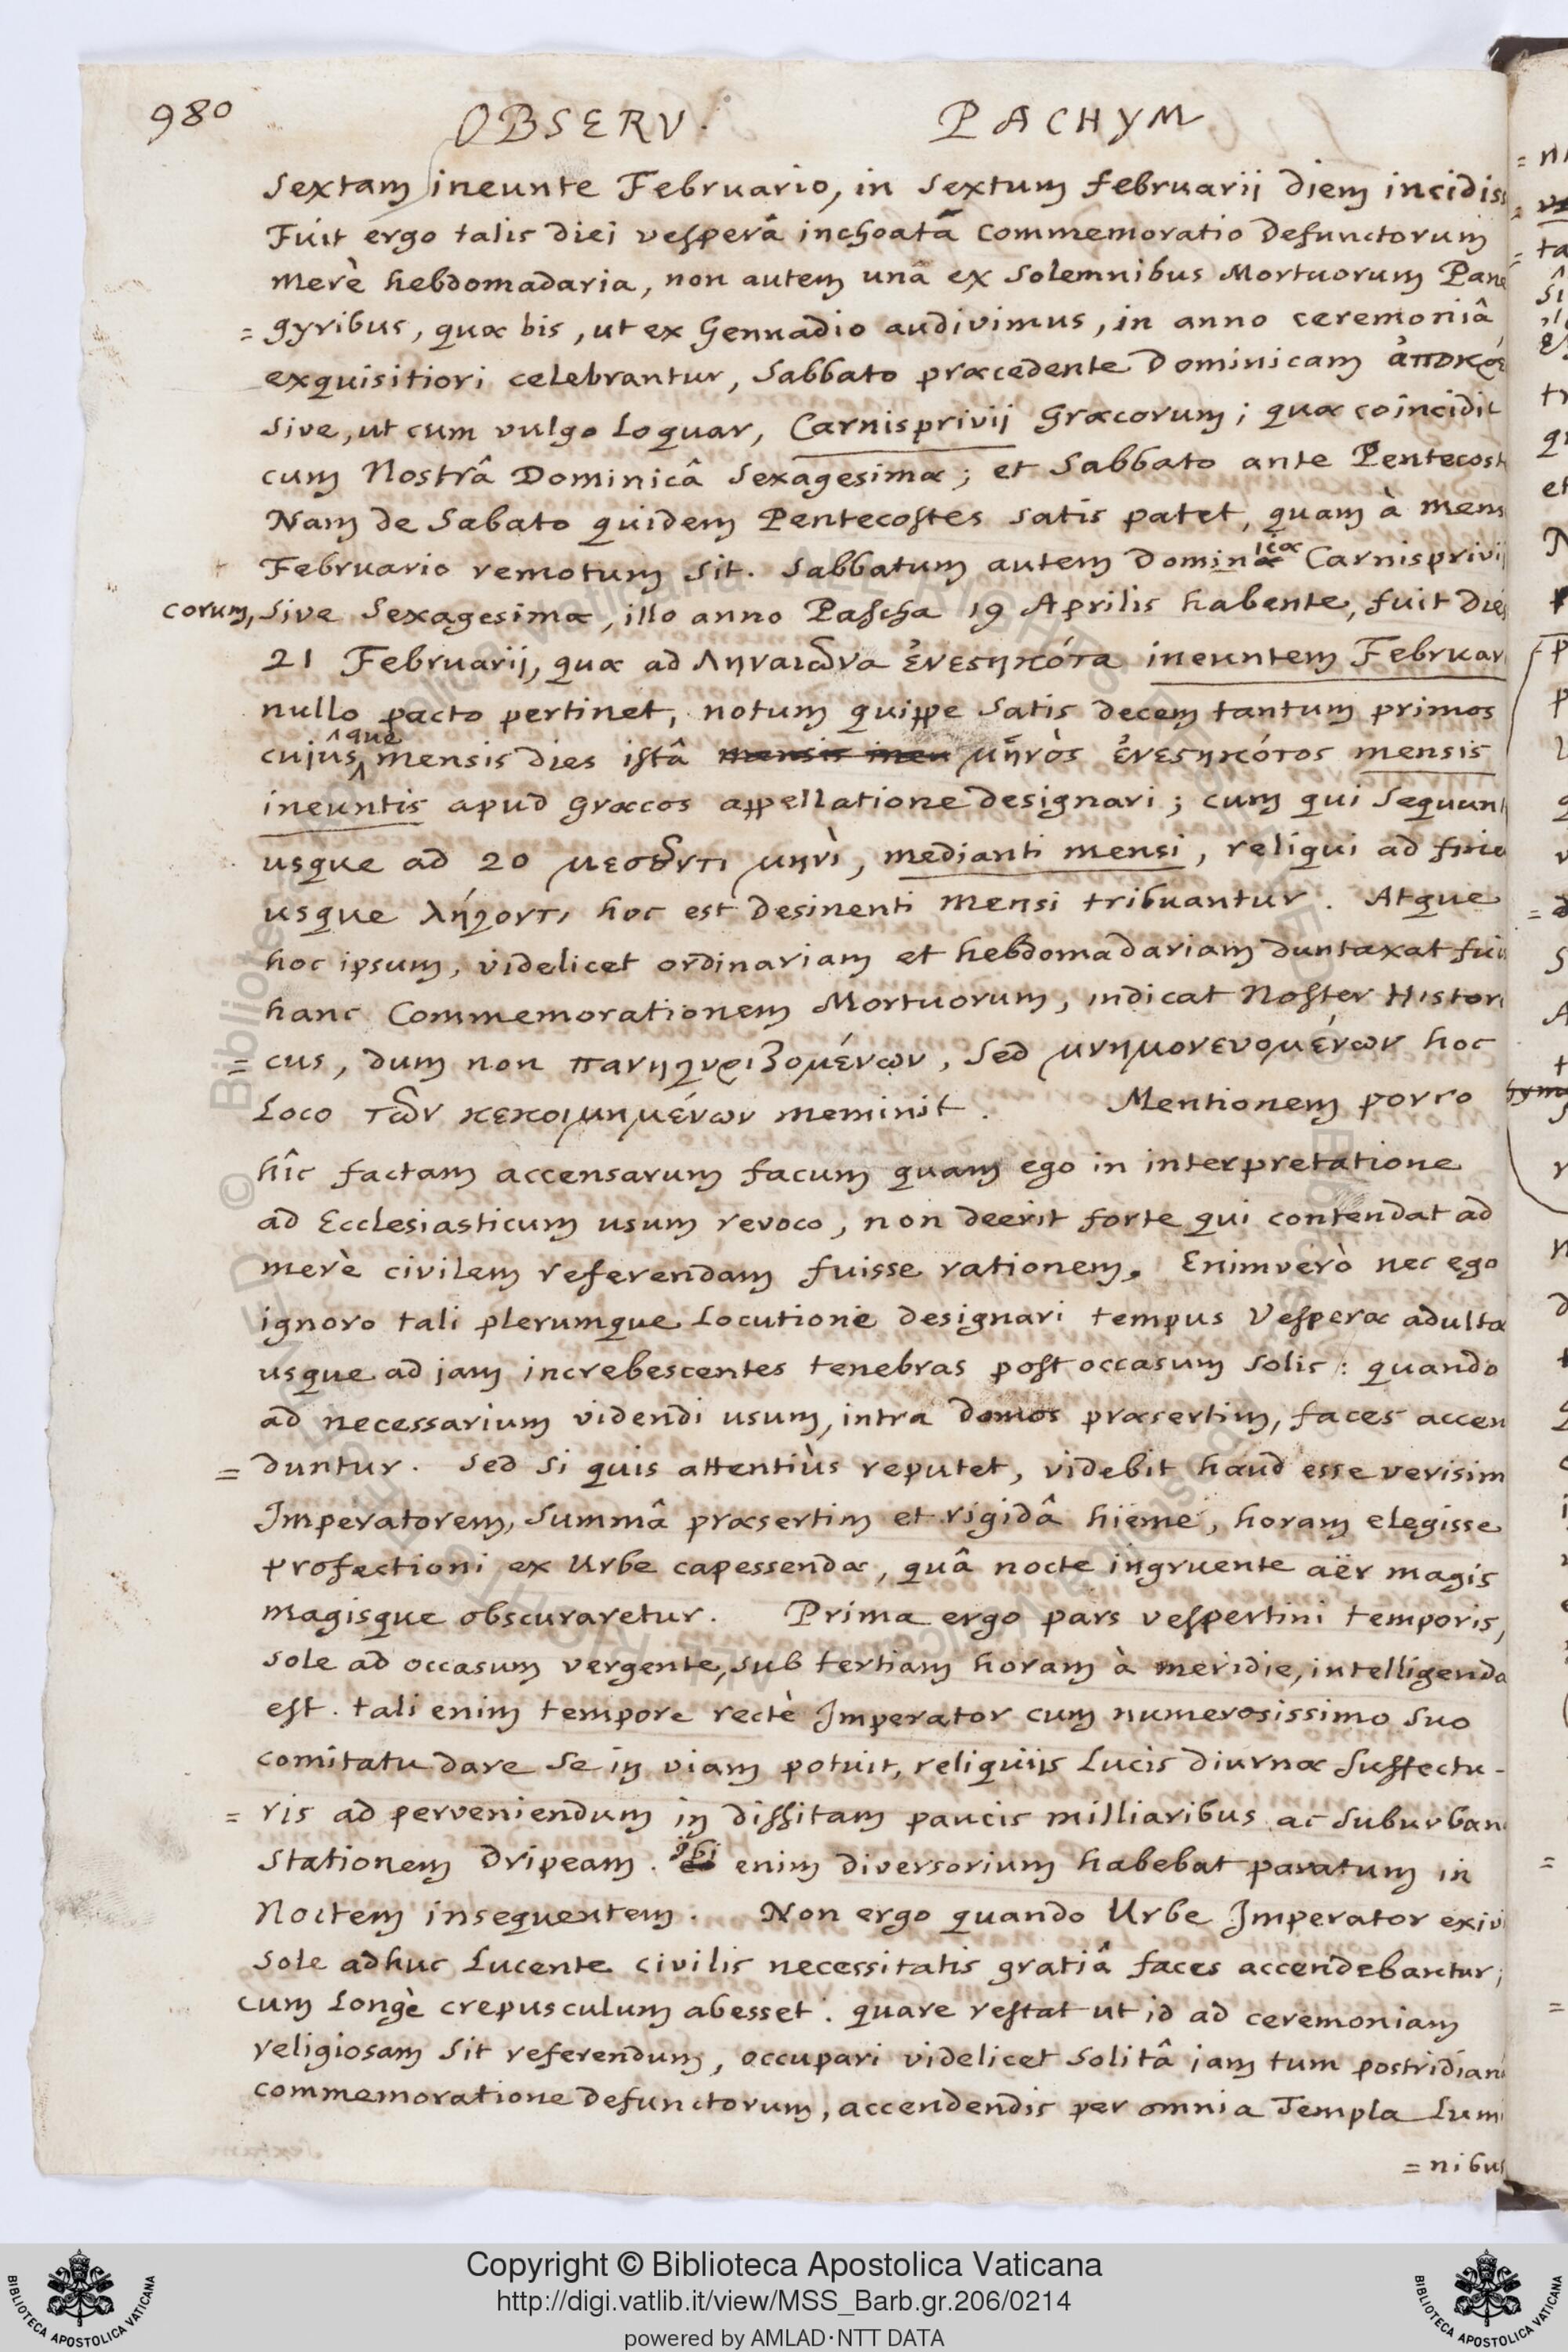 980 OBSERV. PACHYM
sextam ineunte Februario, in sextum februarij diem incidiss
Fuit ergo talis diei vesperâ inchoatâ Commemoratio Defunctorum
merè hebdomadaria, non autem una ex solemnibus Mortuorum Pane
= gyribus, quæ bis, ut ex Gennadio audivimus, in anno ceremoniâ
exquisitiori celebrantur, Sabbato præcedente Dominicam ἀποκρέ
sive, ut cum vulgo loquar, Carnisprivij Græcorum; quæ coincidit
cum Nostrâ Dominicâ Sexagesimæ; et Sabbato ante Pentecost
Nam de Sabato quidem Pentecostes satis patet, quam à mens
Februario remotum sit. Sabbatum autem Dominicæ Carnisprivij
corum, sive Sexagesimæ, illo anno Pascha 19 Aprilis habente, fuit dies
21 Februarij, quæ ad Ληναιῶνα ἐνεστηκότα ineuntem Februar
nullo pacto pertinet, notum quippe satis decem tantum primos
cujusque mensis dies istâ mensis ineu μηνὸς ἐνεστηκότος mensis
ineuntis apud græcos appellatione designari; cum qui sequunt
usque ad 20 μεσοῦντι μηνὶ, medianti mensi, reliqui ad fine
usque λήγοντι hoc est desinenti mensi tribuantur. Atque
hoc ipsum, videlicet ordinariam et hebdomadariam duntaxat fuis
hanc Commemorationem Mortuorum, indicat Noster Histori
= cus, dum non πανηγυριζομένων, sed μνημονευομένων hoc
Loco τῶν κεκοιμημένων meminit. Mentionem porro
hîc factam accensarum facum quam ego in interpretatione
ad Ecclesiasticum usum revoco, non deerit forte qui contendat ad
merè civilem referendam fuisse rationem. Enimverò nec ego
ignoro tali plerumque Locutione designari tempus Vesperæ adultæ
usque ad jam increbescentes tenebras post occasum solis: quando
ad necessarium videndi usum, intra domos præsertim, faces accen
= duntur. Sed si quis attentiùs reputet, videbit haud esse verisim
Imperatorem, summâ præsertim et rigidâ hieme, horam elegisse
profectioni ex Urbe capessendæ, quâ nocte ingruente aër magis
magisque obscuraretur. Prima ergo pars vespertini temporis,
sole ad occasum vergente, sub tertiam horam à meridie, intelligenda
est. tali enim tempore rectè Imperator cum numerosissimo suo
comitatu dare se in viam potuit, reliquijs Lucis diurnæ suffectu-
= ris ad perveniendum in dissitam paucis milliaribus ac suburban
stationem Dripeam. ibi enim diversorium habebat paratum in
Noctem insequentem. Non ergo quando Urbe Imperator exivi
sole adhuc Lucente civilis necessitatis gratiâ faces accendebantur;
cum Longè crepusculum abesset. quare restat ut id ad ceremoniam
religiosam sit referendum, occupari videlicet solitâ iam tum postridianâ
commemoratione Defunctorum, accendendis per omnia Templa Lumi
= nibus
© Biblioteca Apostolica Vaticana
Copyright © Biblioteca Apostolica Vaticana
http://digi.vatlib.it/view/MSS_Barb.gr.206/0214
powered by AMLAD·NTT DATA
BIBLIOTECA APOSTOLICA VATICANA
BIBLIOTECA APOSTOLICA VATICANA